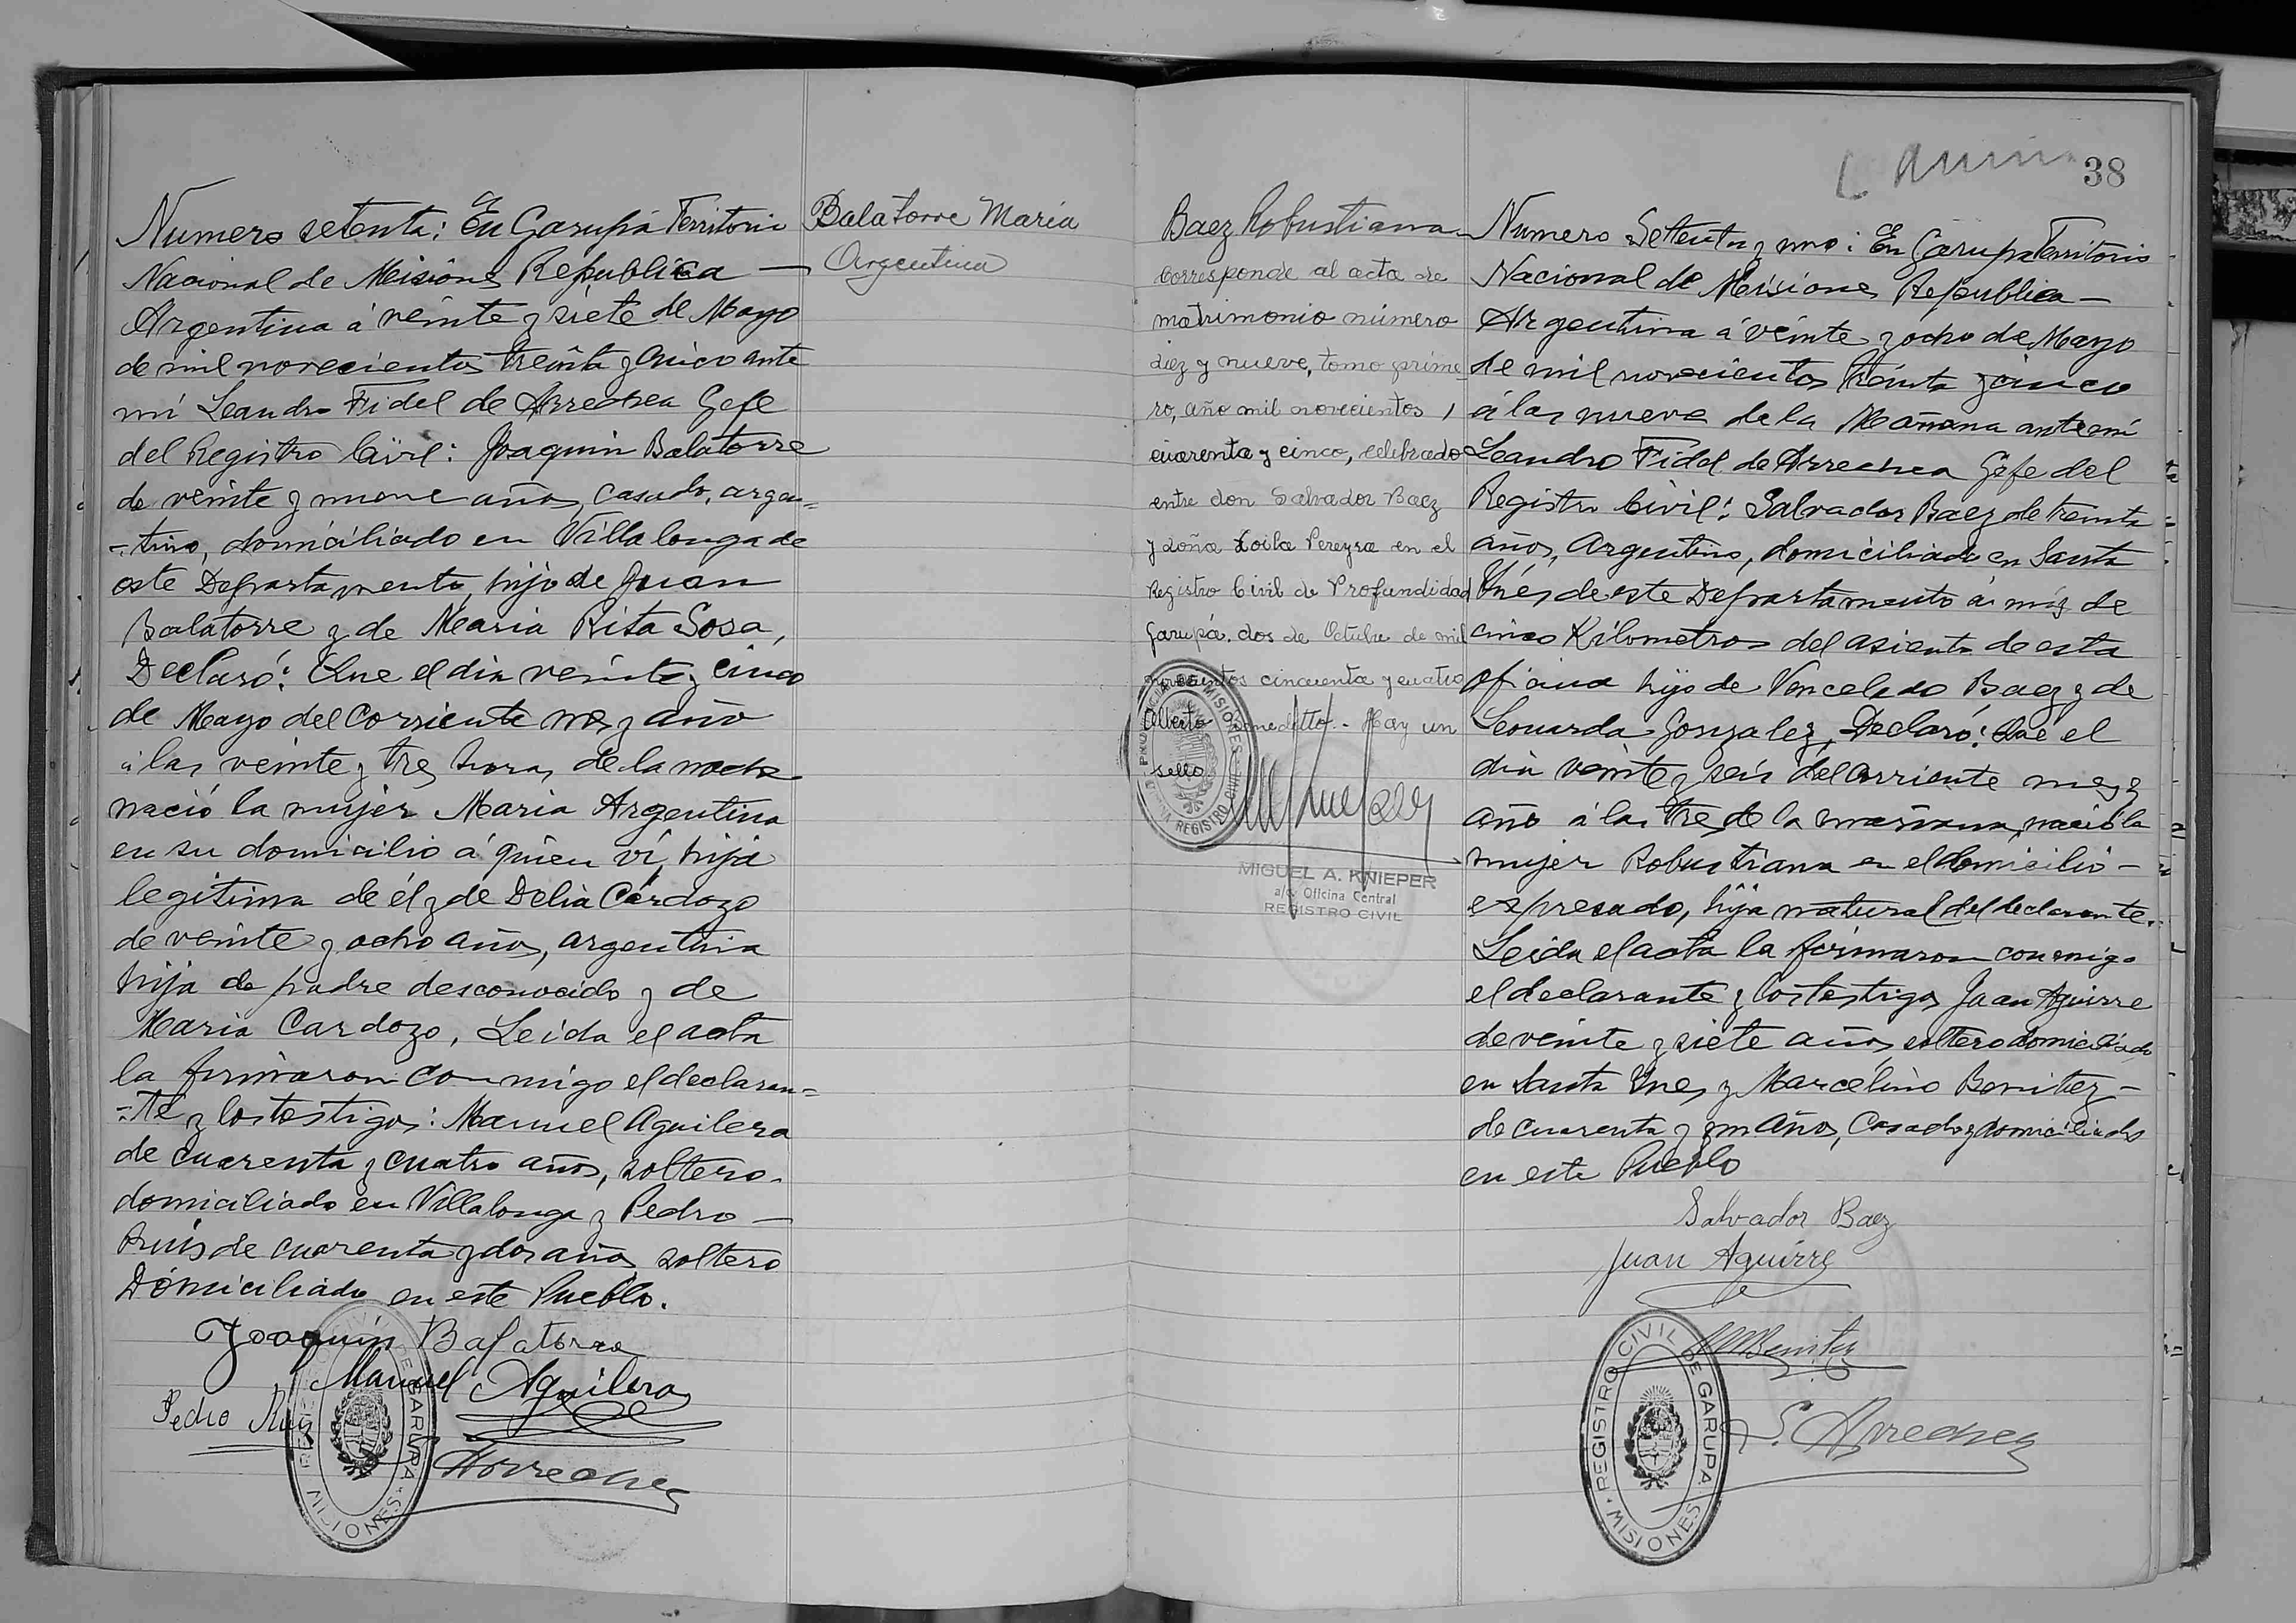 Numero setenta: En Garupá Territorio
Nacional de Misiones Republica —
Argentina á veinte y siete de Mayo
de mil novecientos treinta y cinco ante
mí Leandro Fidel de Arrechea Gefe
del Registro Civil: Joaquin Balatorre
de veinte y nueve años, casado, argen=
=tino, domiciliado en Villalonga de
este Departamento, hijo de Juan
Balatorre y de Maria Rita Sosa,
Declaró: Que el dia veinte y cinco
de Mayo del corriente mes y año
á las veinte y tres horas de la noche
nació la mujer Maria Argentina
en su domicilio á quien ví, hija
legitima de él y de Delia Cardozo
de veinte y ocho años, argentina
hija de padre desconocido y de
Maria Cardozo, Leida el acta
la firmaron conmigo el declaran=
=te y los testigos: Manuel Aguilera
de cuarenta y cuatro años, soltero
domiciliado en Villalonga y Pedro —
Ruis de cuarenta y dos años soltero
Domiciliado en este Pueblo.
Joaquin Balatorre
Manuel Aguilera
Pedro Ruiz
Arrechea
REGISTRO CIVIL DE GARUPA
MISIONES
Balatorre Maria
Argentina
38
Baez Robustiana
Corresponde al acta de
matrimonio número
diez y nueve, tomo prime_
ro, año mil novecientos
cuarenta y cinco, celebrado
entre don Salvador Baez
y doña Zoila Pereyra en el
Registro Civil de Profundidad
Garupá, dos de Octubre de mil
novecientos cincuenta y cuatro
Alberto Benedetto. - Hay un
sello
PROVINCIA DE MISIONES
REGISTRO CIVIL
MIGUEL A. KNIEPER
a/c. Oficina Central
REGISTRO CIVIL
Numero Setenta y uno: En Garupa Territorio
Nacional de Misiones Republica —
Argentina á veinte y ocho de Mayo
de mil novecientos treinta y cinco
á las nueve de la Mañana ante mí
Leandro Fidel de Arrechea Gefe del
Registro Civil: Salvador Baez de treinta
años, Argentino, domiciliado en Santa
Ynés de este Departamento á más de
cinco Kilometros del asiento de esta
oficina hijo de Venceslado Baez y de
Leonarda Gonzalez, Declaró: Que el
dia veinte y seis del corriente mes y
año á las tres de la mañana, nació la
mujer Robustiana en el domicilio —
espresado, hija natural del declarante.
Leida el acta la firmaron conmigo
el declarante y los testigos Juan Aguirre
de veinte y siete años soltero domiciliado
en Santa Ynes y Marcelino Benitez —
de cuarenta y un años, Casado y domiciliado
en este Pueblo
Salvador Baez
Juan Aguirre
M Benitez
L. Arrechea
REGISTRO CIVIL DE GARUPA
MISIONES